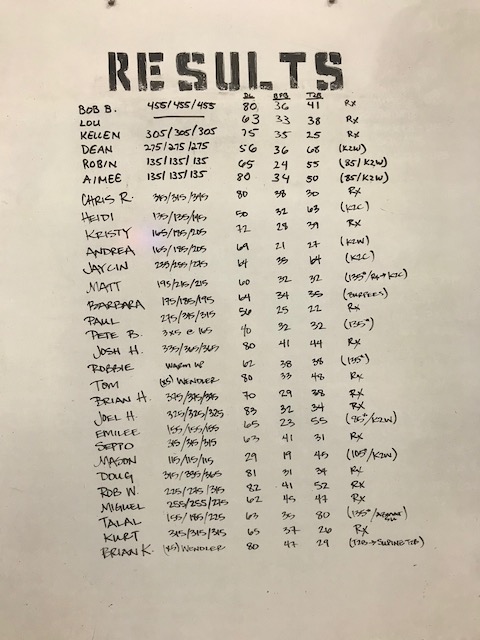 RESULTS
DL BPB T2B
BOB B. 455/455/455 80 36 41 RX
LOU 63 33 38 RX
KELLEN 305/305/305 75 35 25 RX
DEAN 275/275/275 56 36 68 (K2W)
ROBIN 135/135/135 65 24 55 (85/K2W)
AIMEE 135/135/135 80 34 50 (85/K2W)
CHRIS R. 315/315/315 80 38 30 RX
HEIDI 135/135/145 50 32 63 (K2C)
KRISTY 165/185/205 72 28 39 RX
ANDREA 165/185/205 69 21 27 (K2W)
JAYCIN 235/255/275 64 35 64 (K2C)
MATT 195/215/215 60 32 32
BARBARA 175/185/195 64 34 35 (BURPEES)
PAUL 275/315/315 56 25 22 RX
PETE B. 3x5 @ 165 40 32 32 (135#)
JOSH H. 335/365/365 80 41 44 RX
ROBBIE WARM UP 62 38 38 (135#)
TOM (x5) WENDLER 80 33 48 RX
BRIAN H. 325/325/325 70 29 38 RX
JOEL H. 325/325/325 83 32 34 RX
EMILEE 155/155/155 65 23 55 (95#/K2W)
SEPPO 315/315/315 63 41 31 RX
MASON 115/115/115 29 19 45 (105#/K2W)
DOUG 315/335/365 81 31 34 RX
ROB W. 225/275/315 82 41 52 RX
MIGUEL 255/255/275 62 45 47 RX
TALAL 155/185/225 63 35 80
KURT 315/315/315 65 37 26 RX
BRIAN K. (x5) WENDLER 80 47 29 (T2B→SUPINE T2B)